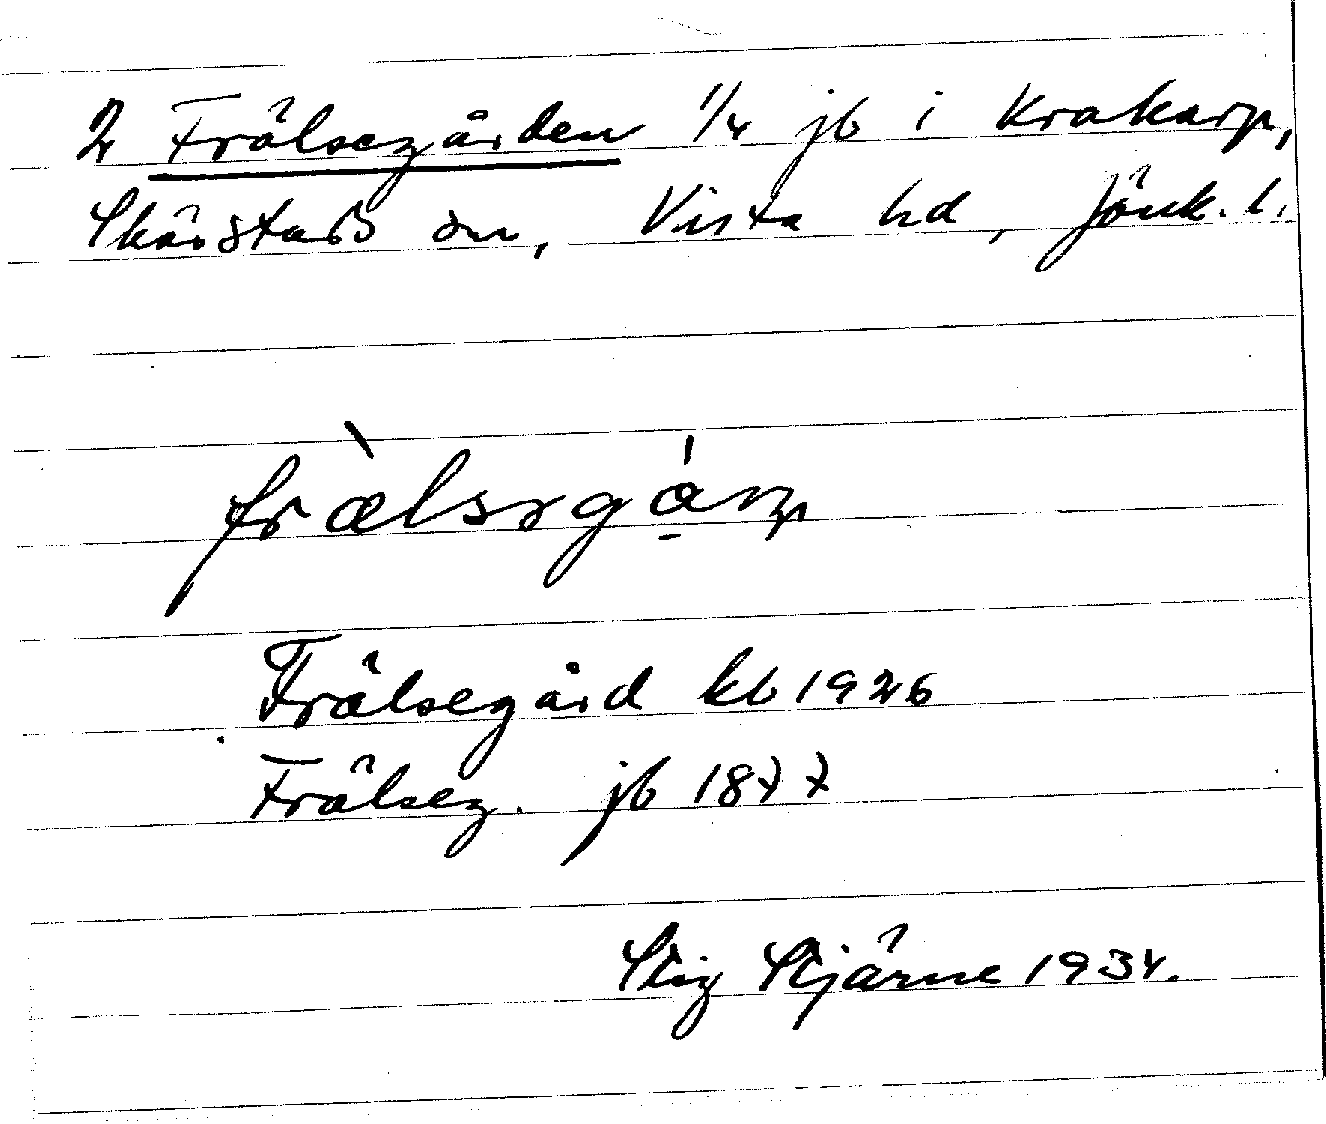 2 Frälsegården 1/4 jb i Krakarp,
Skärstads sn, Vista hd, Jönk. l.
frælsrgárp
Frälsegård kb 1926
Frälseg. jb 1877
Stig Stjärne 1934.